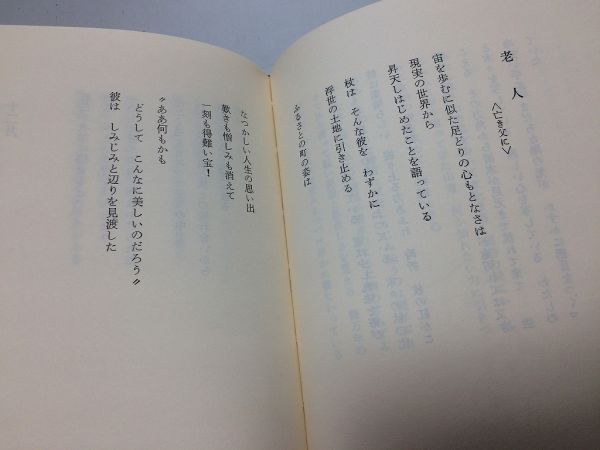 老人
〈亡き父に〉
宙を歩むに似た足どりの心もとなさは
現実の世界から
昇天しはじめたことを語っている
杖は そんな彼を わずかに
浮世の土地に引き止める
ふるさとの町の姿は
なつかしい人生の思い出
歎きも憎しみも消えて
一刻も得難い宝!
〝ああ何もかも
どうして こんなに美しいのだろう〟
彼は しみじみと辺りを見渡した